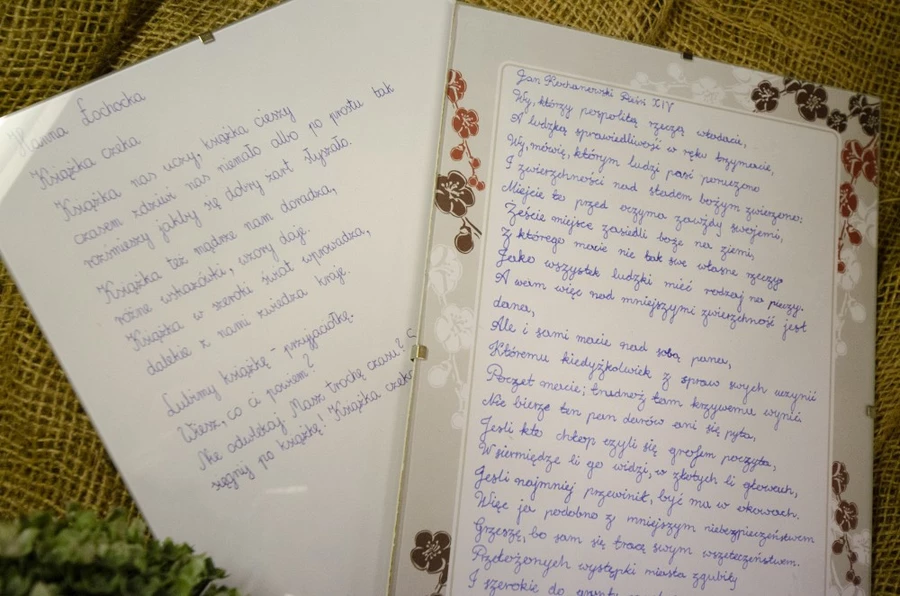 Hanna Łochocka
Książka czeka
Książka nas uczy, książka cieszy
czasem zdziwi nas niemało albo po prostu tak
rozśmieszy jakby się dobry żart słyszało.
Książka też mądrze nam doradza,
różne wskazówki, wzory daje.
Książka w szeroki świat wprowadza,
dalekie z nami zwiedza kraje.
Lubimy książkę - przyjaciółkę.
Wiesz, co ci powiem?
Nie odwlekaj. Masz trochę czasu?
sięgnij po książkę! Książka czeka
Jan Kochanowski Pieśń XIV
Wy, którzy pospolitą rzeczą władacie,
A ludzką sprawiedliwość w ręku trzymacie,
Wy, mówię, którym ludzi paść poruczono
I zwierzchności nad stadem bożym zwierzono:
Miejcie to przed oczyma zawżdy swojemi,
Żeście miejsce zasiedli boże na ziemi,
Z którego macie nie tak swe własne rzeczy
Jako wszystek ludzki mieć rodzaj na pieczy.
A wam więc nad mniejszymi zwierzchność jest
dana,
Ale i sami macie nad sobą pana,
Któremu kiedyżkolwiek z spraw swych uczynić
Poczet macie; trudnoż tam krzywemu wynić.
Nie bierze ten pan darów ani się pyta,
Jeśli kto chłop czyli się grofem poczyta,
W siermiędze li go widzi, w złotych li głowach,
Jeśli namniej przewinił, być ma w okowach.
Więc ja podobno z mniejszym niebezpieczeństwem
Grzeszę, bo sam się tracę swym wszeteczeństwem.
Przełożonych występki miasta zgubiły
I szerokie do gruntu